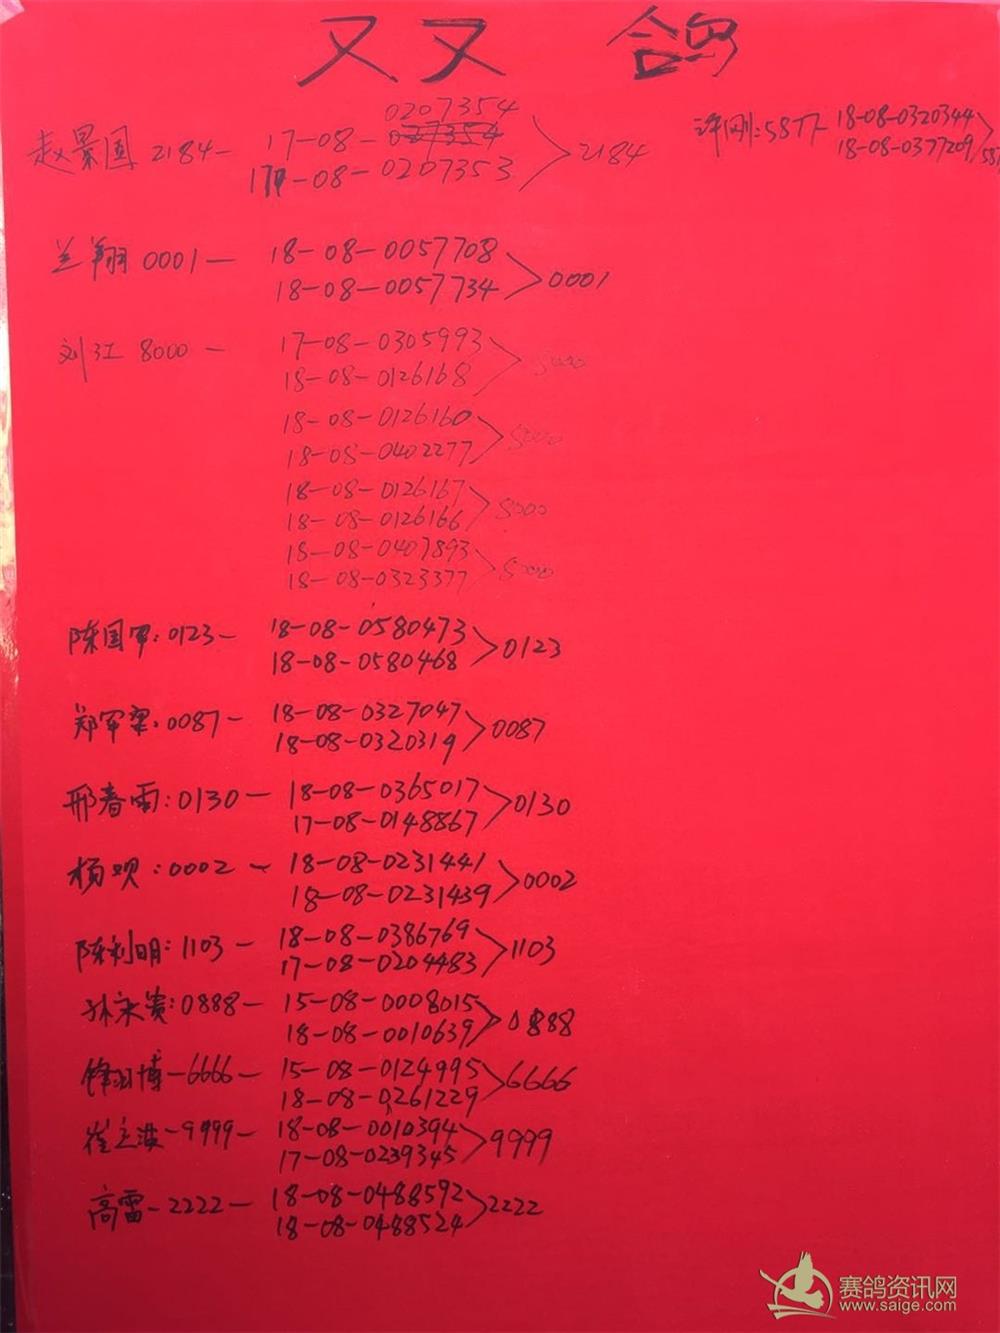 双双 鸽
赵景国 2184- 17-08-0207354 >2184
17-08-0207353
许刚:5877- 18-08-0320344
18-08-0377209
兰翔 0001- 18-08-0057708 >0001
18-08-0057734
刘江 8000- 17-08-0305993 >8000
18-08-0126168
18-08-0126160 >8000
18-08-0402277
18-08-0126167 >8000
18-08-0126166
18-08-0407893 >8000
18-08-0323377
陈国军:0123- 18-08-0580473 >0123
18-08-0580468
郑军梁:0087- 18-08-0327047 >0087
18-08-0320319
邢春雨:0130- 18-08-0365017 >0130
17-08-0148867
杨:0002- 18-08-0231441 >0002
18-08-0231439
陈利明:1103- 18-08-0386769 >1103
17-08-0204483
孙永贵:0888- 15-08-0008015 >0888
18-08-0010639
锋羽博-6666- 15-08-0124995 >6666
18-08-0261229
崔立波-9999- 18-08-0010394 >9999
17-08-0239345
高雷-2222- 18-08-0488592 >2222
18-08-0488524
赛鸽资讯网
www.saige.com